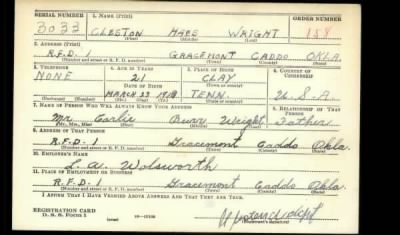 SERIAL NUMBER 1. NAME (Print) ORDER NUMBER
3033 CLESTON HAES WRIGHT 158
2. ADDRESS (Print)
R.F.D. 1 GRACEMONT CADDO OKLA.
(Number and street or R. F. D. number) (Town) (County) (State)
3. TELEPHONE 4. AGE IN YEARS 5. PLACE OF BIRTH 6. COUNTRY OF CITIZENSHIP
NONE 21 CLAY
DATE OF BIRTH (Town or county)
MARCH 23 1919 TENN. U.S.A.
(Mo.) (Day) (Yr.) (State or country)
7. NAME OF PERSON WHO WILL ALWAYS KNOW YOUR ADDRESS 8. RELATIONSHIP OF THAT PERSON
Mr. Earlie Wright Father
(Mr., Mrs., Miss) (First) (Middle) (Last)
9. ADDRESS OF THAT PERSON
R.F.D. 1 Gracemont Caddo Okla.
(Number and street or R. F. D. number) (Town) (County) (State)
10. EMPLOYER'S NAME
L. A. Wolsworth
11. PLACE OF EMPLOYMENT OR BUSINESS
R.F.D. 1 Gracemont Caddo Okla.
(Number and street or R. F. D. number) (Town) (County) (State)
I AFFIRM THAT I HAVE VERIFIED ABOVE ANSWERS AND THAT THEY ARE TRUE.
REGISTRATION CARD
D. S. S. Form 1
(Registrant's signature)